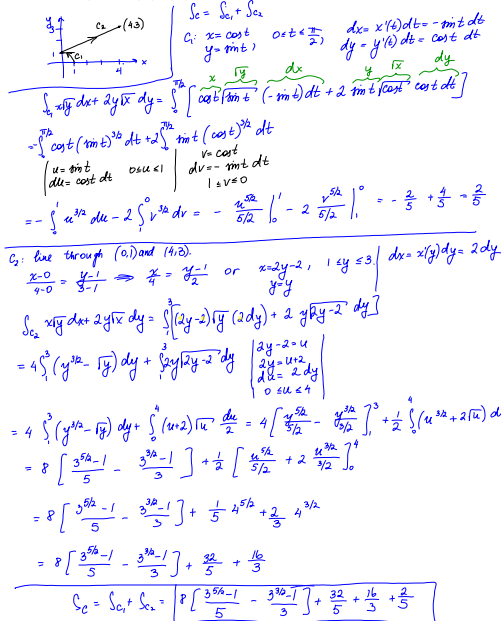 y
3
C₂ (4,3)
1
C₁
1 4 x
∫_C = ∫_C₁ + ∫_C₂
C₁: x = cost, 0 ≤ t ≤ π/2, dx = x'(t)dt = - sint dt
y = sint, dy = y'(t)dt = cost dt
x √y dx y √x dy
∫_C₁ x√y dx + 2y√x dy = ∫_0^{π/2} [cost √sint (-sint)dt + 2 sint √cost cost dt]
= -∫_0^{π/2} cost (sint)^{3/2} dt + 2∫_0^{π/2} sint (cost)^{3/2} dt
u = sint 0 ≤ u ≤ 1 v = cost
du = cost dt dv = - sint dt
1 ≤ v ≤ 0
= - ∫_0^1 u^{3/2} du - 2 ∫_1^0 v^{3/2} dv = - u^{5/2}/5/2 |_0^1 - 2 v^{5/2}/5/2 |_1^0 = - 2/5 + 4/5 = 2/5
C₂: line through (0,1) and (4,3).
x-0/4-0 = y-1/3-1 ⟹ x/4 = y-1/2 or x = 2y-2, 1 ≤ y ≤ 3. dx = x'(y)dy = 2dy
y = y
∫_C₂ x√y dx + 2y√x dy = ∫_1^3 [(2y-2)√y (2dy) + 2 y√2y-2 dy]
= 4∫_1^3 (y^{3/2} - √y) dy + ∫_1^3 2y√2y-2 dy
2y-2 = u
2y = u+2
du = 2dy
0 ≤ u ≤ 4
= 4 ∫_1^3 (y^{3/2} - √y) dy + ∫_0^4 (u+2)√u du/2 = 4 [y^{5/2}/5/2 - y^{3/2}/3/2]_1^3 + 1/2 ∫_0^4 (u^{3/2} + 2√u) d
= 8 [3^{5/2}-1/5 - 3^{3/2}-1/3] + 1/2 [u^{5/2}/5/2 + 2 u^{3/2}/3/2]_0^4
= 8 [3^{5/2}-1/5 - 3^{3/2}-1/3] + 1/5 4^{5/2} + 2/3 4^{3/2}
= 8 [3^{5/2}-1/5 - 3^{3/2}-1/3] + 32/5 + 16/3
∫_C = ∫_C₁ + ∫_C₂ = 8 [3^{5/2}-1/5 - 3^{3/2}-1/3] + 32/5 + 16/3 + 2/5